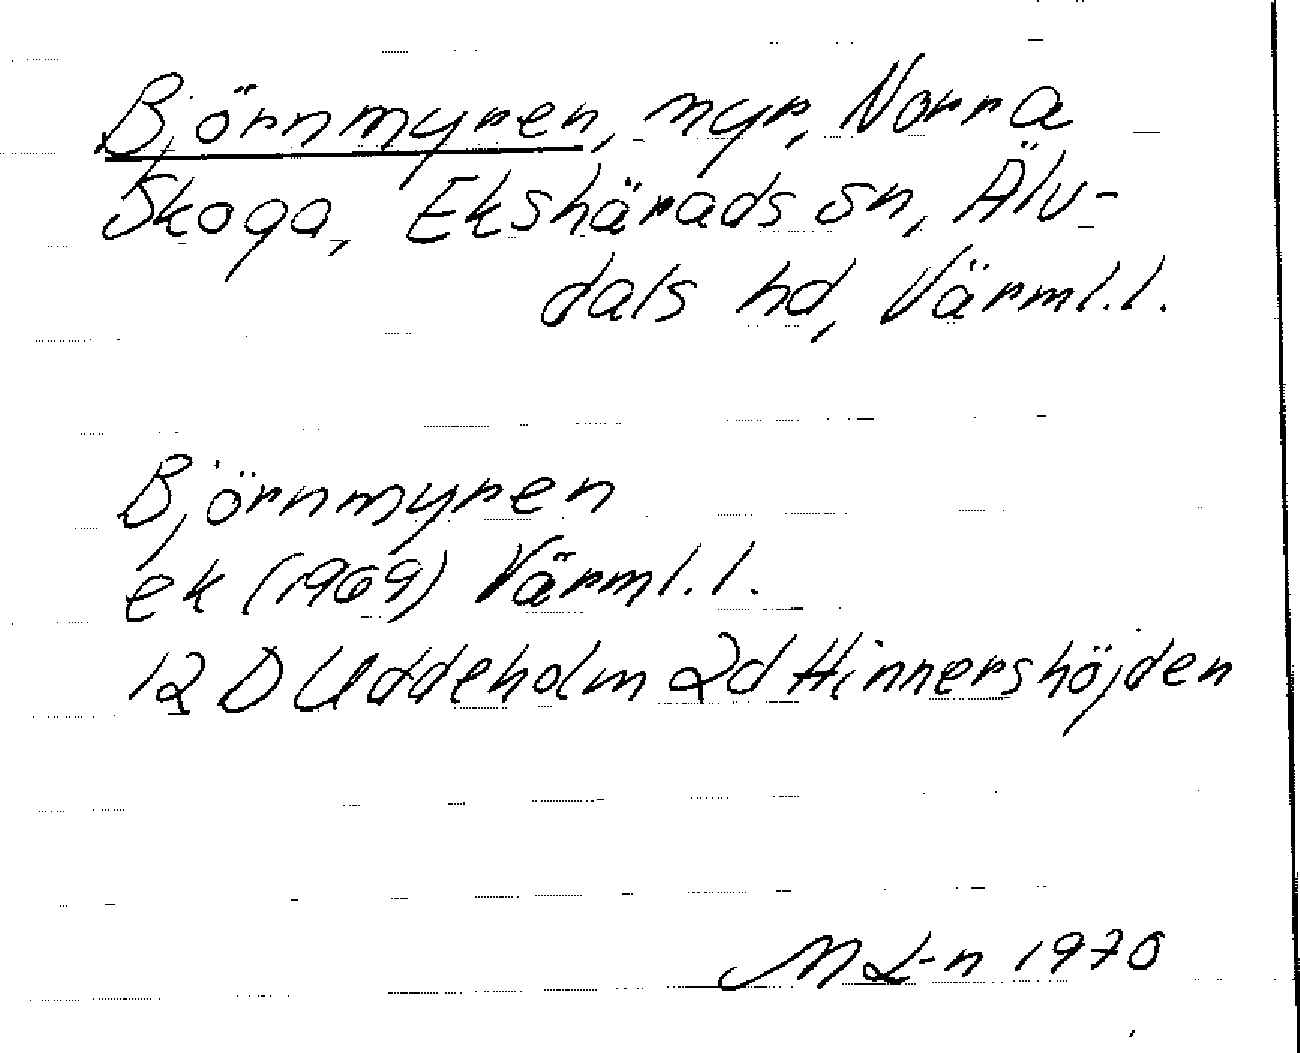 Björnmyren, myr, Norra
Skoga, Ekshärads sn, Älv-
dals hd, Värml.l.
Björnmyren
ek (1969) Värml.l.
12 D Uddeholm 2d Hinnershöjden
M L-n 1970